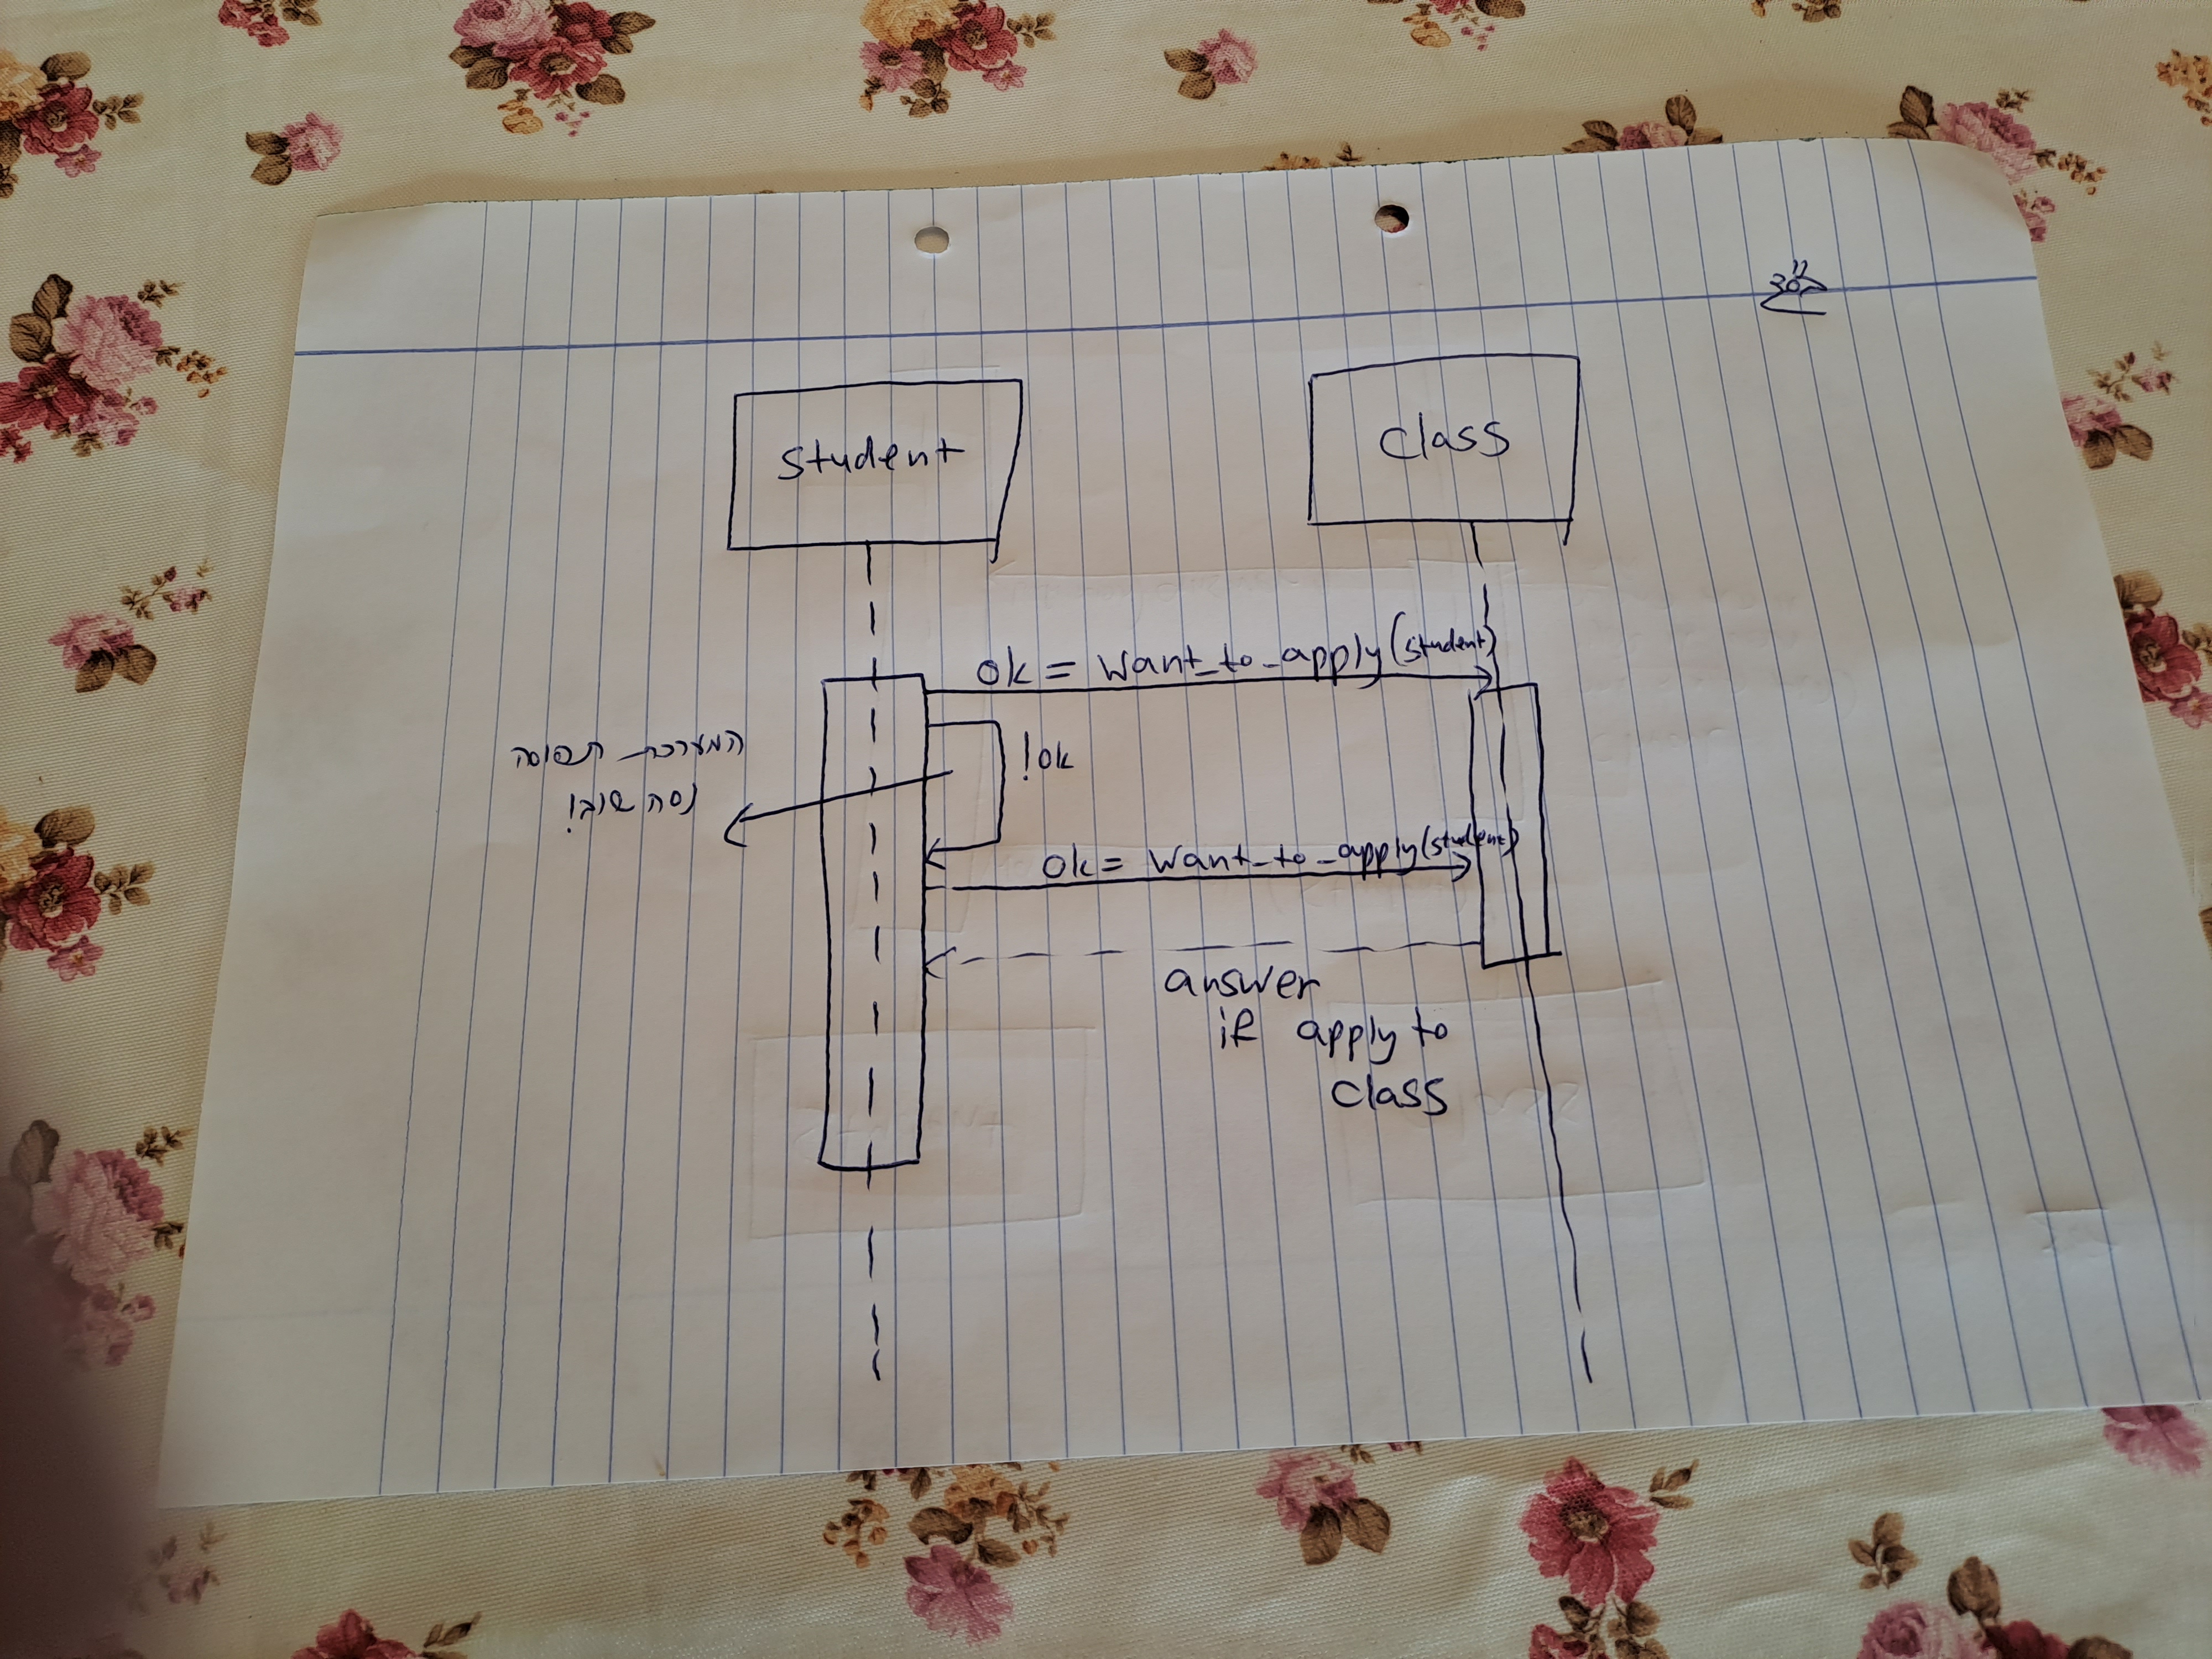 בס"ד
Student
Class
ok = want_to_apply(student)
!ok
נסה שוב!
ok = want_to_apply(student)
answer
if apply to
class